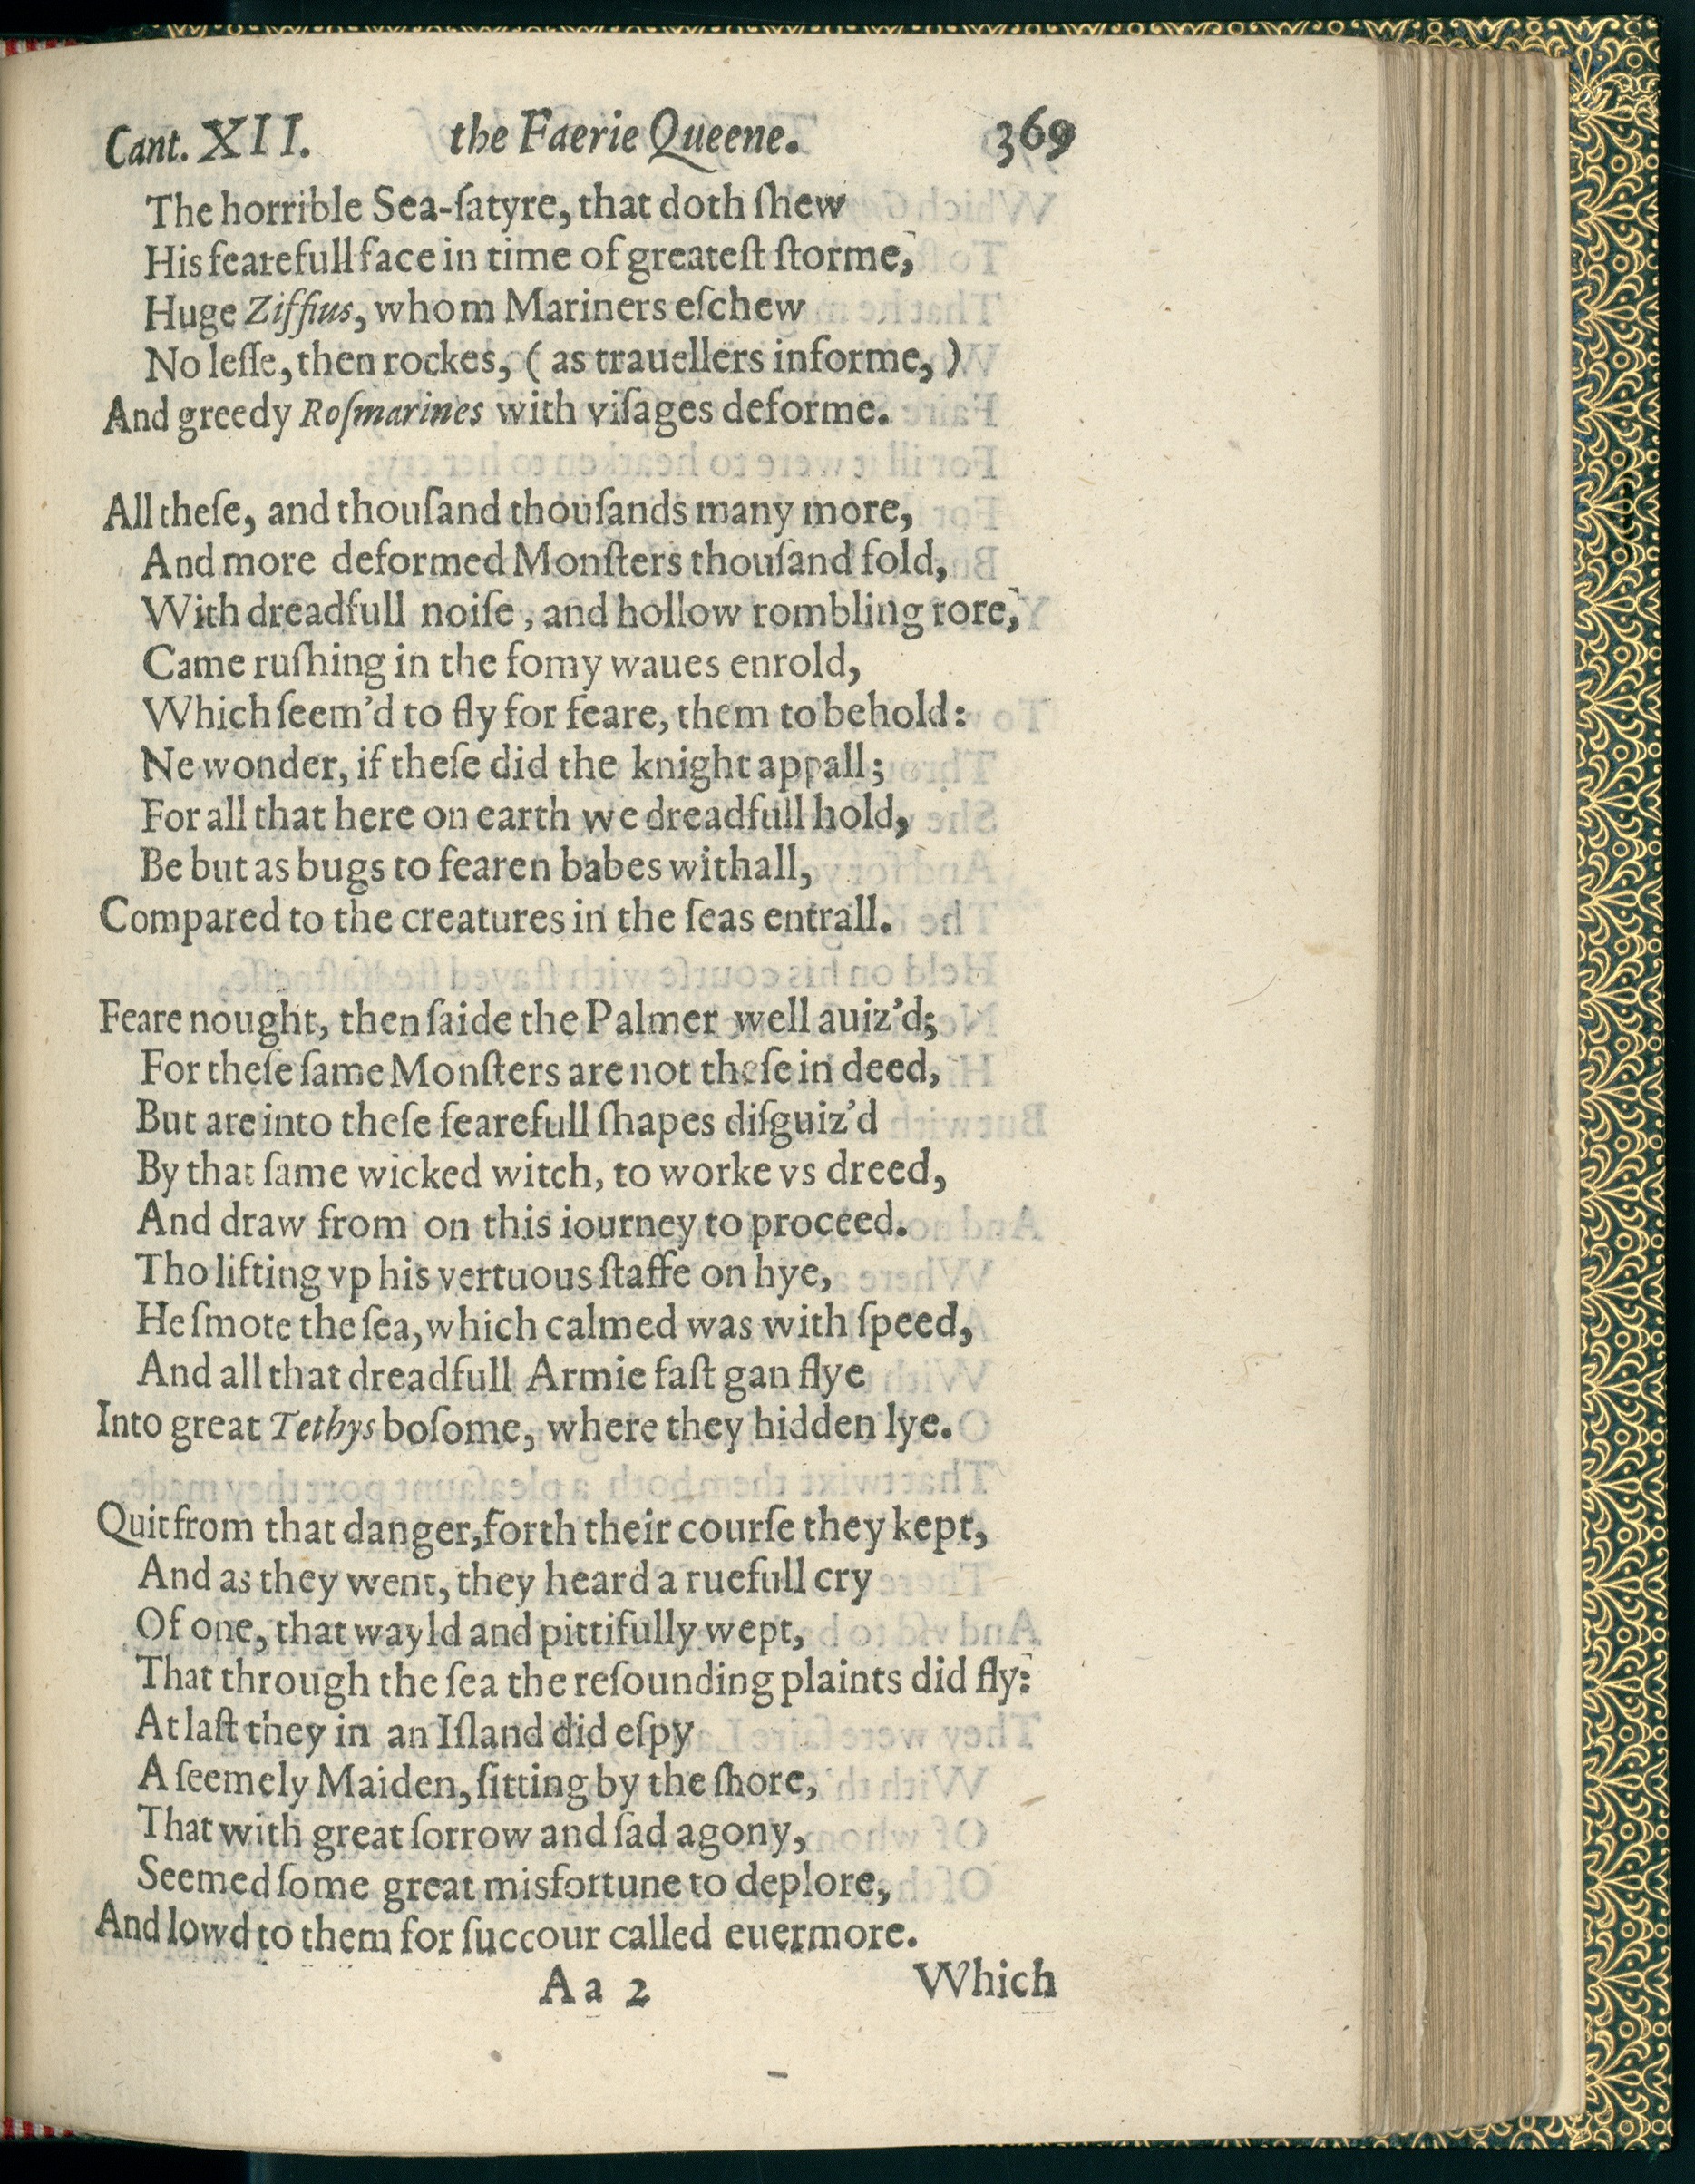 Cant. XII. the Faerie Queene. 369
The horrible Sea-ſatyre, that doth ſhew
His fearefull face in time of greateſt ſtorme,
Huge Ziffius, whom Mariners eſchew
No leſſe, then rockes, (as trauellers informe,)
And greedy Roſmarines with viſages deforme.
All theſe, and thouſand thouſands many more,
And more deformed Monſters thouſand fold,
With dreadfull noiſe, and hollow rombling rore,
Came ruſhing in the fomy waues enrold,
Which ſeem'd to fly for feare, them to behold:
Ne wonder, if theſe did the knight appall;
For all that here on earth we dreadfull hold,
Be but as bugs to fearen babes withall,
Compared to the creatures in the ſeas entrall.
Feare nought, then ſaide the Palmer well auiz'd;
For theſe ſame Monſters are not theſe in deed,
But are into theſe fearefull ſhapes diſguiz'd
By that ſame wicked witch, to worke vs dreed,
And draw from on this iourney to proceed.
Tho lifting vp his vertuous ſtaffe on hye,
He ſmote the ſea, which calmed was with ſpeed,
And all that dreadfull Armie faſt gan flye
Into great Tethys boſome, where they hidden lye.
Quit from that danger, forth their courſe they kept,
And as they went, they heard a ruefull cry
Of one, that wayld and pittifully wept,
That through the ſea the reſounding plaints did fly:
At laſt they in an Iſland did eſpy
A ſeemely Maiden, ſitting by the ſhore,
That with great ſorrow and ſad agony,
Seemed ſome great misfortune to deplore,
And lowd to them for ſuccour called euermore.
Aa 2 Which